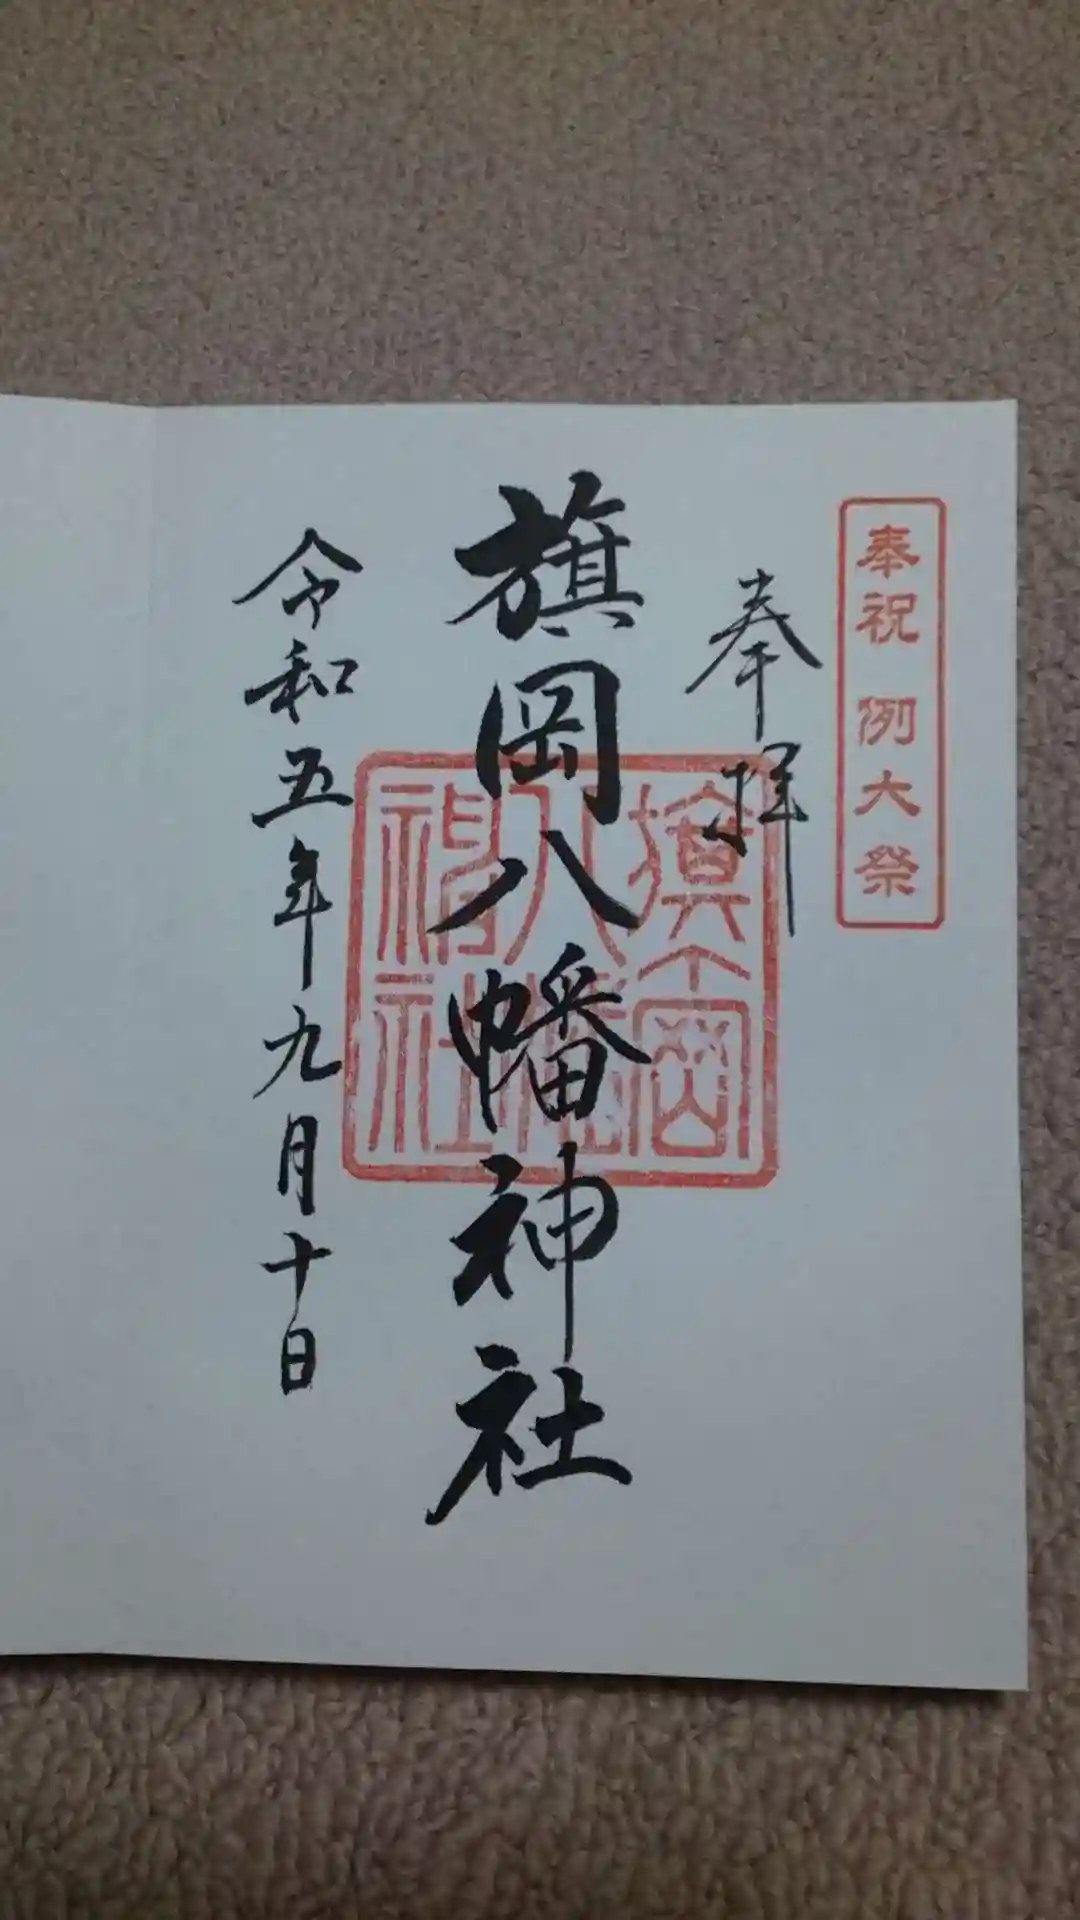 奉祝 例大祭
奉拝
旗岡八幡神社
旗岡八幡神社
令和五年九月十日